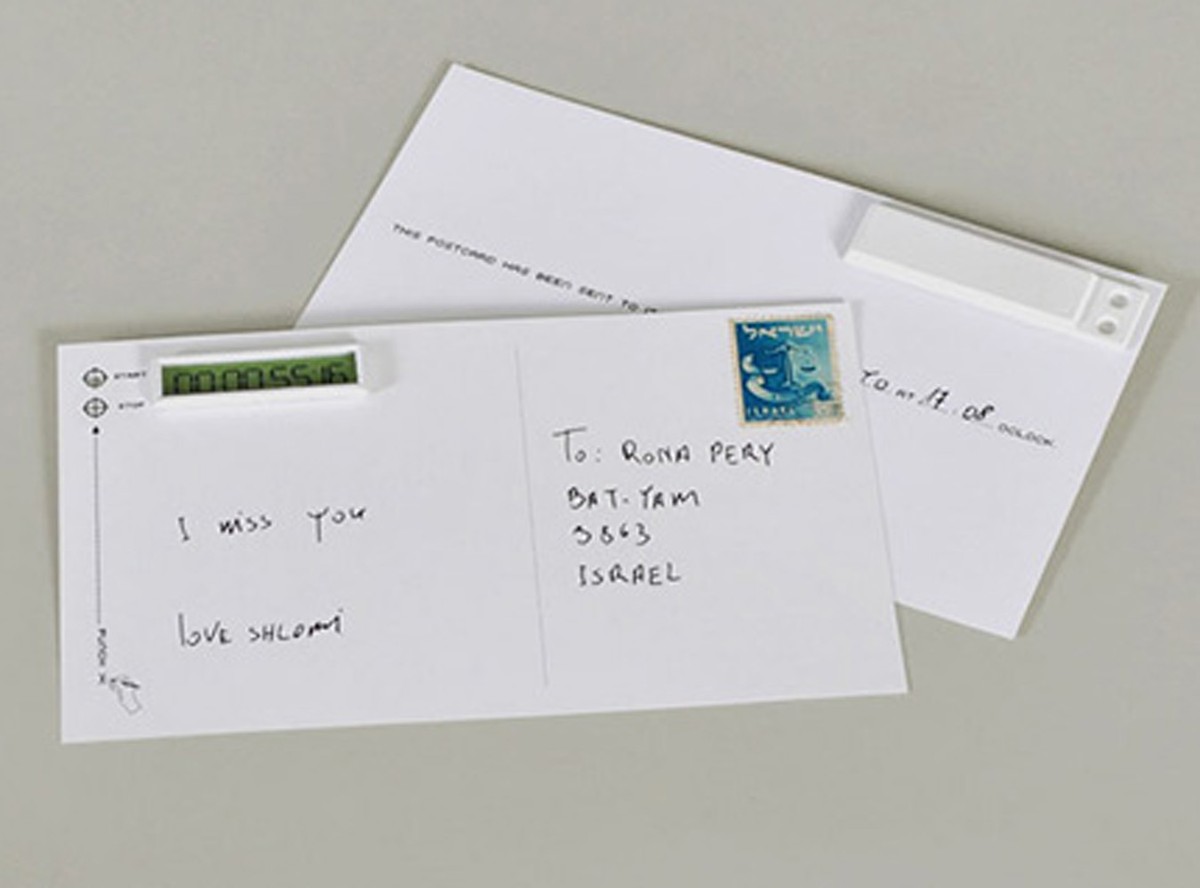 THIS POSTCARD HAS BEEN SENT TO
AT 17 08 OCLOCK
START
STOP
00:00:55:16
PUNCH X
I miss you
love SHLOMI
ישראל
ISRAEL
To: RONA PERY
BAT-YAM
3863
ISRAEL